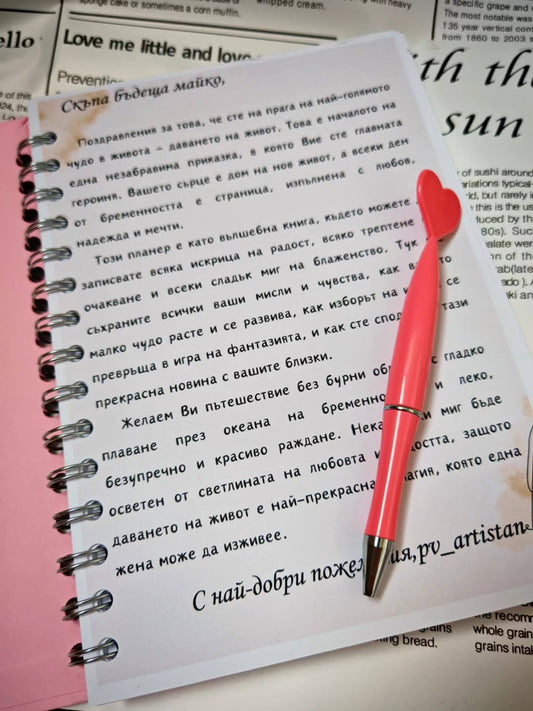 sponge cake or sometimes a corn muffin.
whipped cream.
a specific grape and
The most notable was
135 year vertical
from 1860 to 2003
ello
Love me little and love
Prevention
th th
sun
Скъпа бъдеща майко,
Поздравления за това, че сте на прага на най-голямото
чудо в живота – даването на живот. Това е началото на
една незабравима приказка, в която Вие сте главната
героиня. Вашето сърце е дом на нов живот, а всеки ден
от бременността е страница, изпълнена с любов,
надежда и мечти.
Този планер е като вълшебна книга, където можете
записвате всяка искрица на радост, всяко трептене
очакване и всеки сладък миг на блаженство. Тук
съхраните всички ваши мисли и чувства, как
малко чудо расте и се развива, как изборът на се
превръща в игра на фантазията, и как сте тази
прекрасна новина с вашите близки.
Желаем Ви пътешествие без бурни с гладко
плаване през океана на и леко,
безупречно и красиво раждане. миг бъде
осветен от светлината на любовта и защото
даването на живот е най-прекрасна която една
жена може да изживее.
С най-добри pv_artistan
of sushi around
this is the
whole grain
grains
ing bread.